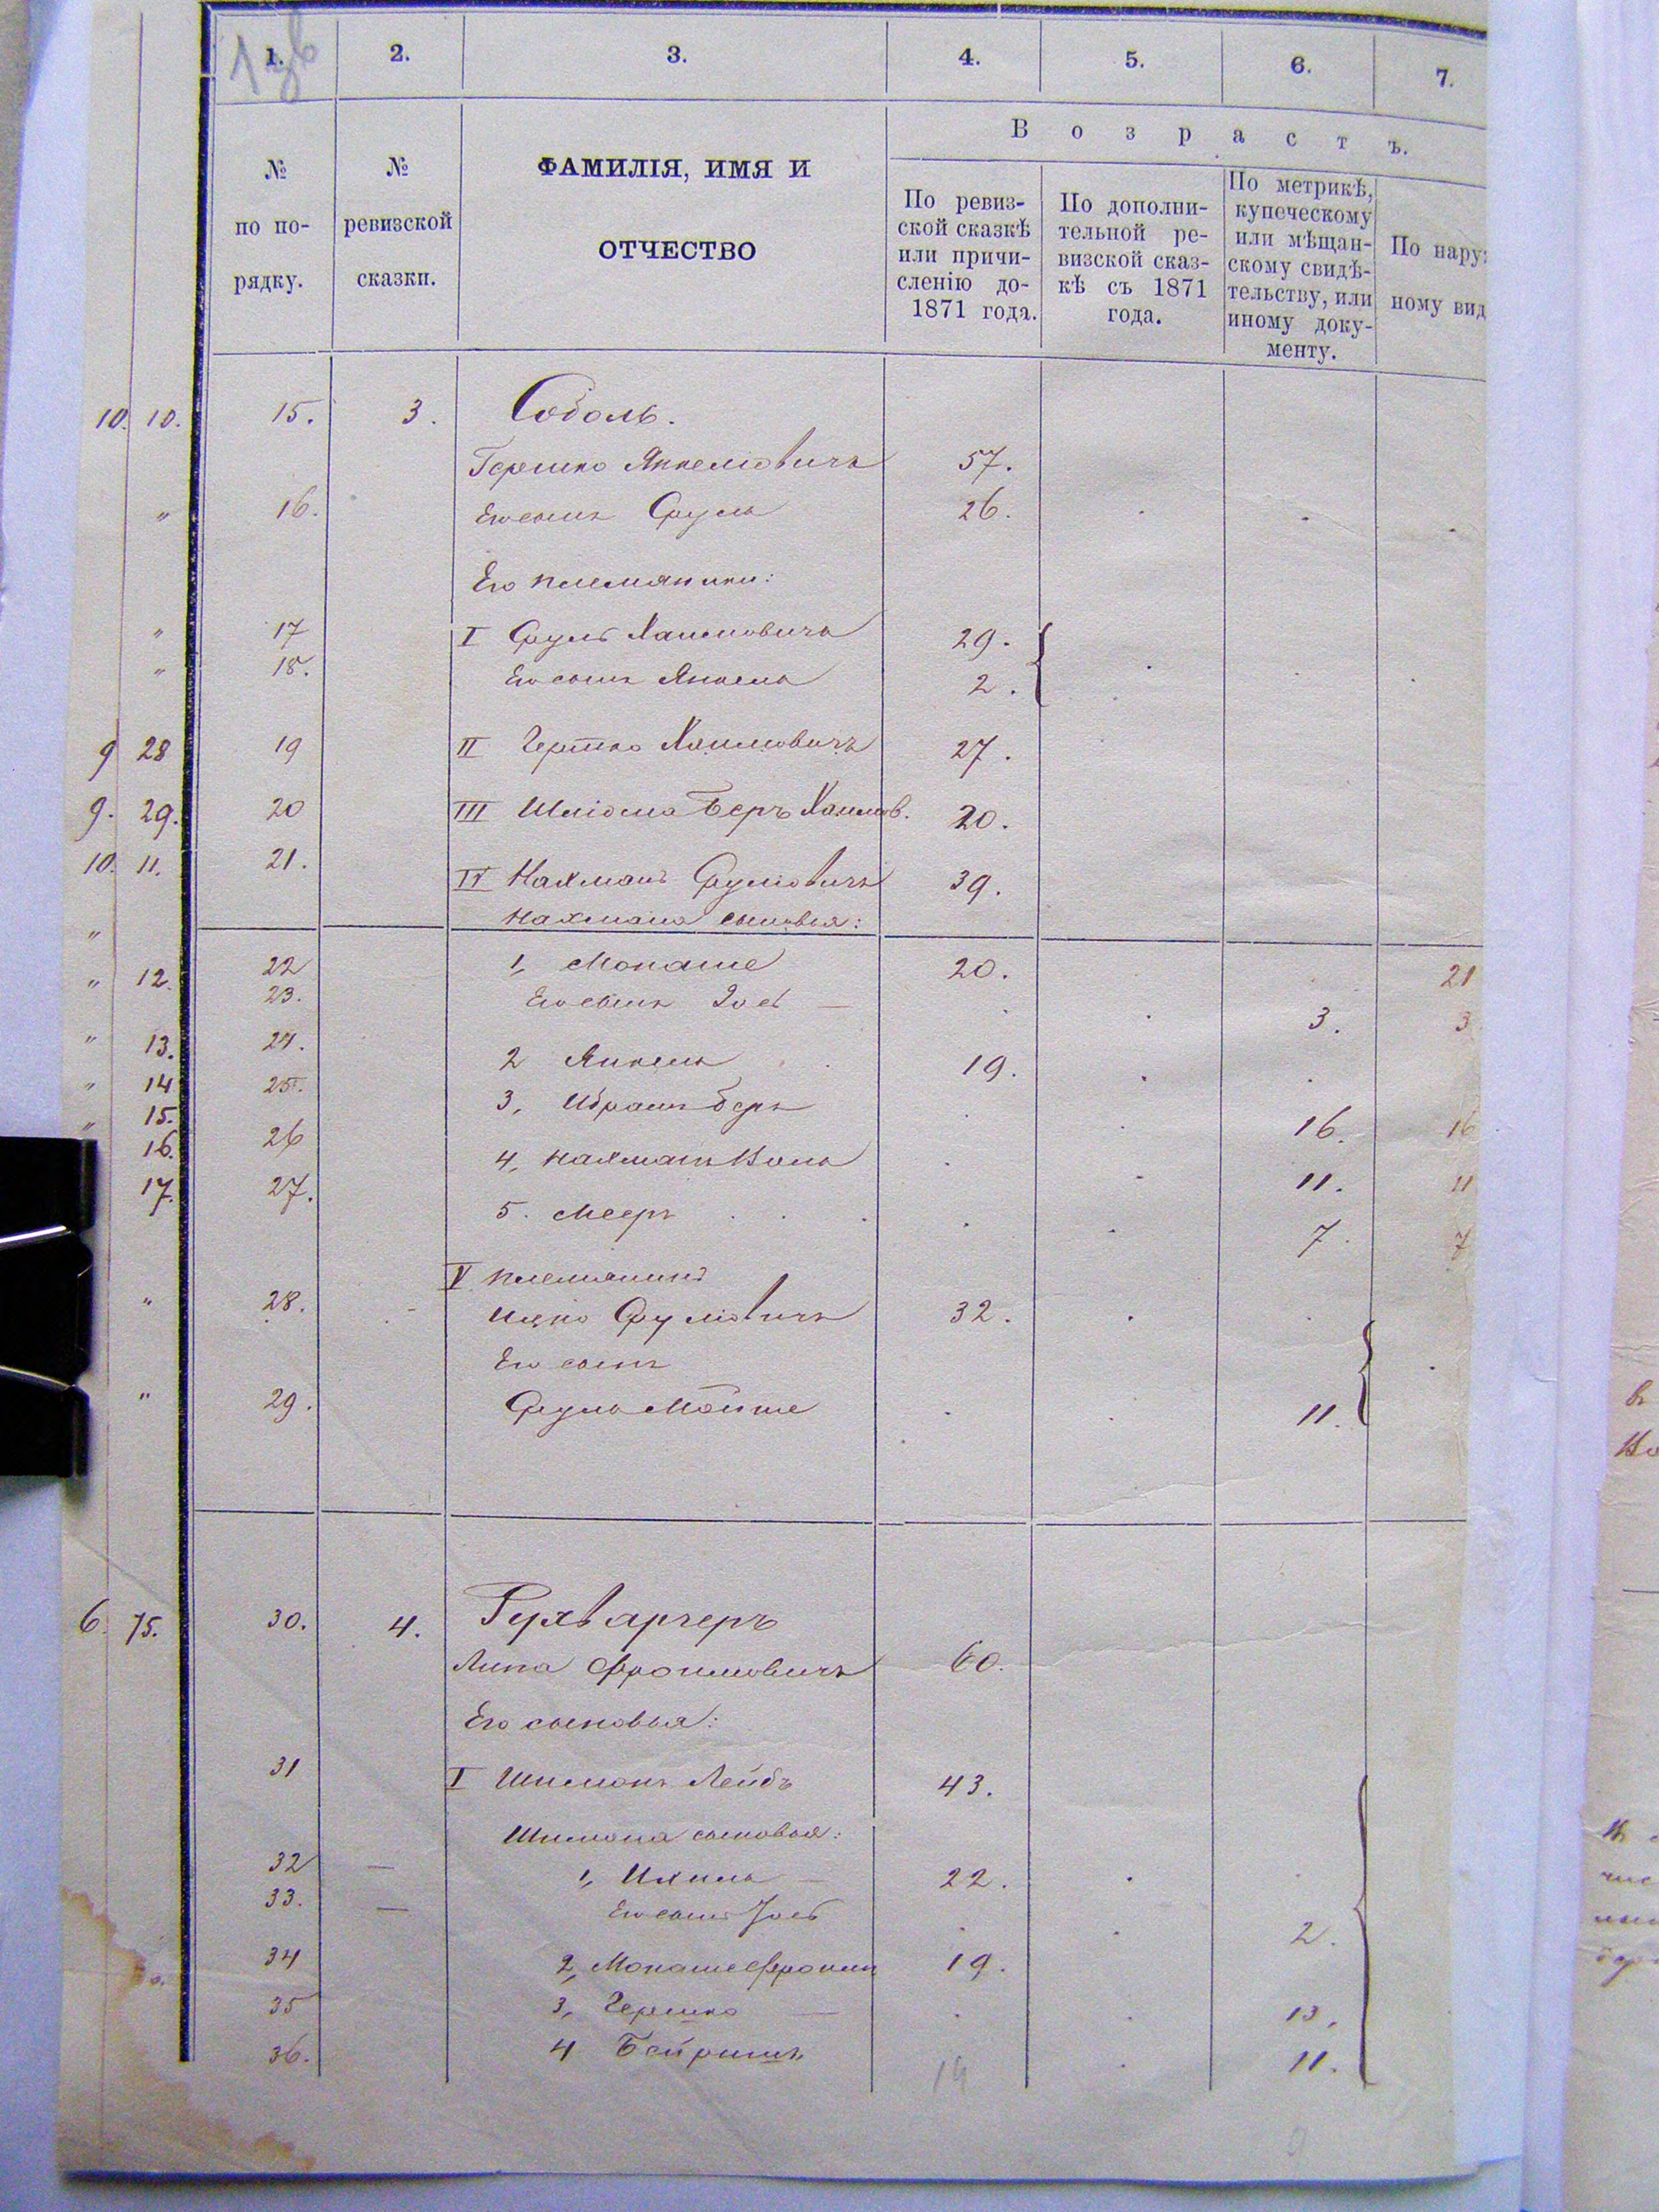 1. 2. 3. 4. 5. 6. 7.
№ по по-рядку.
№ ревизской сказки.
ФАМИЛІЯ, ИМЯ И ОТЧЕСТВО
В о з р а с т ъ.
По ревиз-
ской сказкѣ
или причи-
сленію до-
1871 года.
По дополни-
тельной ре-
визской сказ-
кѣ съ 1871
года.
По метрикѣ,
купеческому
или мѣщан-
скому свидѣ-
тельству, или
иному доку-
менту.
По нару
ному вид
10. 10. 15. 3. Соболь.
Гершко Янкелiовичъ 57.
" 16. Его сынъ Сруль 26.
Его племянники:
" 17 I Сруль Хаимовичъ 29.
" 18. Его сынъ Янкель 2.
9 28 19 II Гершко Хаимовичъ 27.
9. 29. 20 III Шліома Беръ Хаимов. 20.
10. 11. 21. IV Нахманъ Сруліовичъ 39.
" Нахмана сыновья:
" 12. 22 1, Монаше 20. 21
23. Его сынъ Іосъ — 3. 3
" 13. 24. 2 Янкель 19.
" 14 25. 3, Абрамъ беръ 16. 16
" 15. 26 4, 11. 11
16.
17. 27. 5. Мееръ 7. 7
V племянникъ
" 28. Ицко Сруліовичъ 32.
Его сынъ
" 29. Сруль Мошше 11.
6. 75. 30. 4. Рухваргеръ
Липа Фроимовичъ 60.
Его сыновья:
31 I Шимонъ Лейбъ 43.
Шимона сыновья:
32 — 1, Ихиль — 22.
33. — Его сынъ Іось 2.
34 2, Монаше Фроим 19.
35 3, Гершко — 13.
36. 4 Бейришъ 11.
19